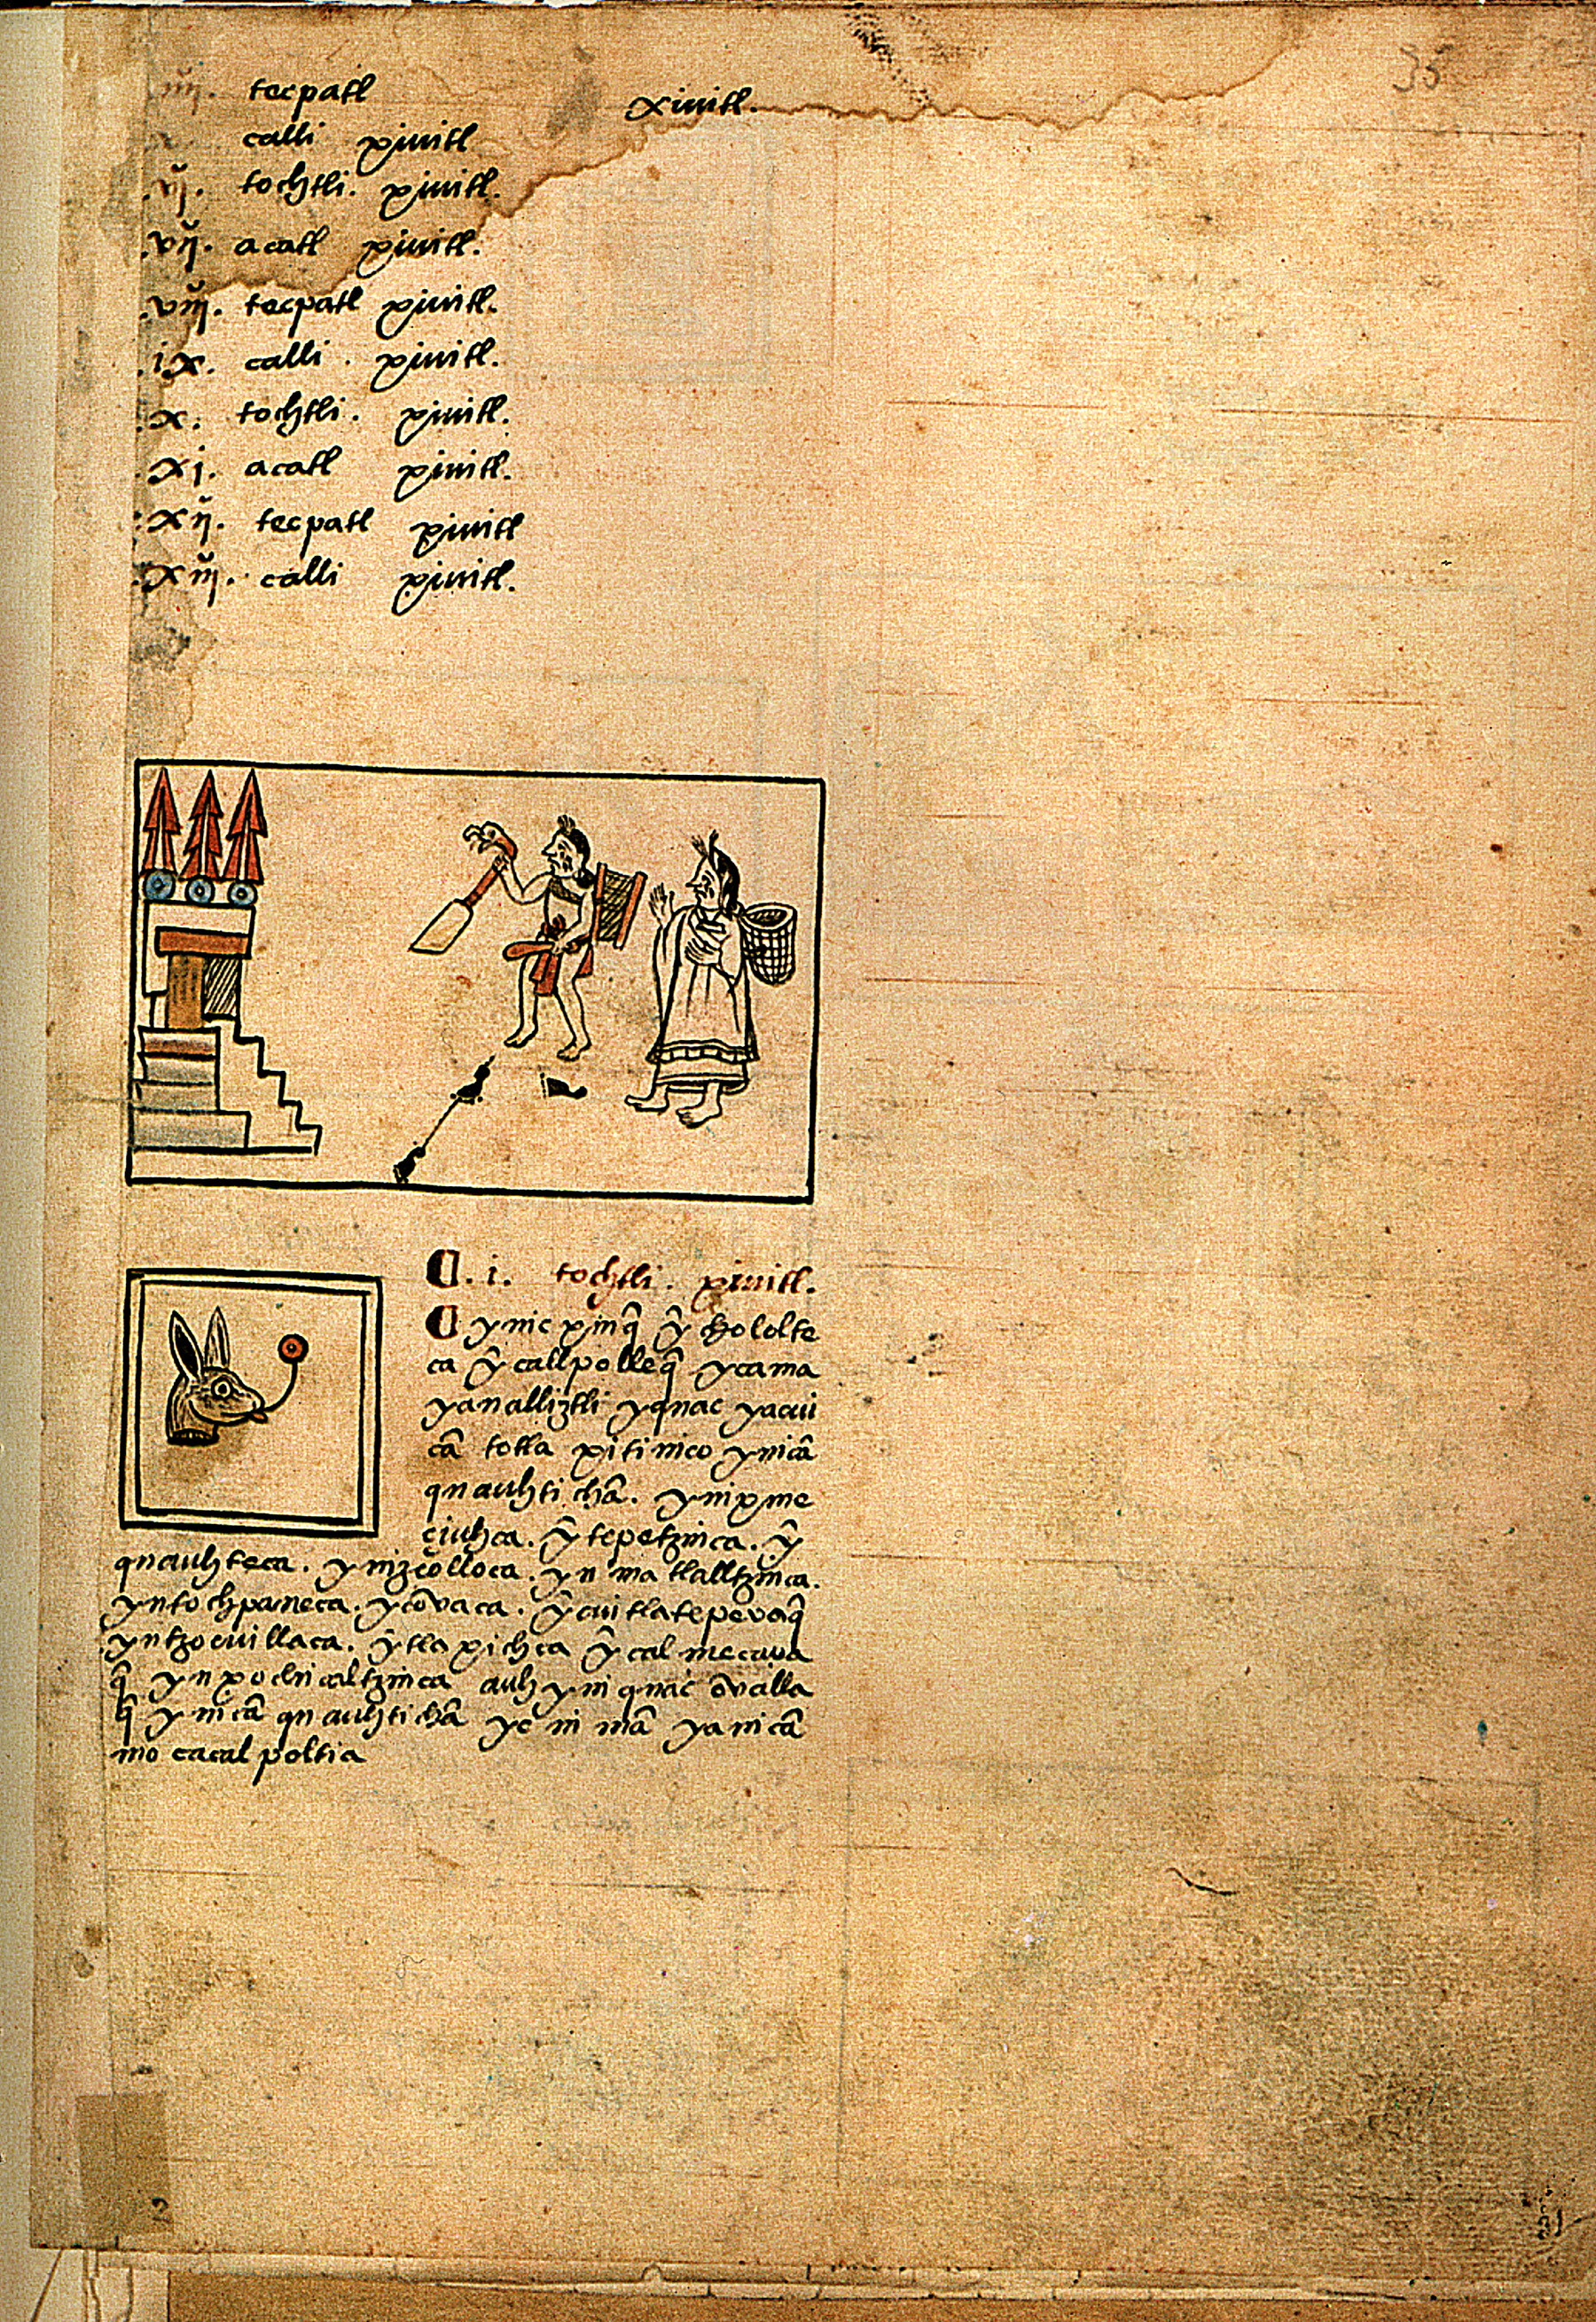 35
iiij. tecpatl xiuitl.
calli xiuitl
.vj. tochtli. xiuitl.
.vij. acatl xiuitl.
.viij. tecpatl xiuitl.
.ix. calli. xiuitl.
.x. tochtli. xiuitl.
.xj. acatl xiuitl.
.xij. tecpatl xiuitl
.xiij. calli xiuitl.
.i. tochtli. xiuitl.
ynic xinq̃ ỹ chololte
ca ỹ callpolleq̃ ycama
yanalliztli yquac yacui
cã totla pitinico ynicã
quauhtichã. ynixme
çiuhca. ỹ tepetzinca. ỹ
quauhteca. ynizcõlloca. yn matlalltzinca.
yntochpaneca. ycõvaca. ỹcuitlatepevaq̃
yntzocuillaca. ỹtlapichca ỹcalmecaua
q̃ ynpochicaltzinca auh yniquac õvalla
q̃ ynicã quauhtichã ye nimã yanicã
mocacalpoltia
2
31